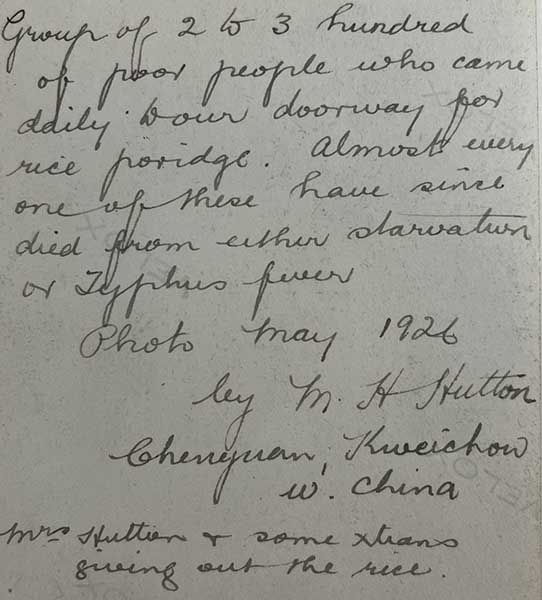 Group of 2 to 3 hundred
of poor people who came
daily to our doorway for
rice poridge. Almost every
one of these have since
died from either starvation
or Typhus fever
Photo May 1926
by M. H Hutton
Chenyuan, Kweichow
W. China
Mrs Hutton & some xtians
giving out the rice.